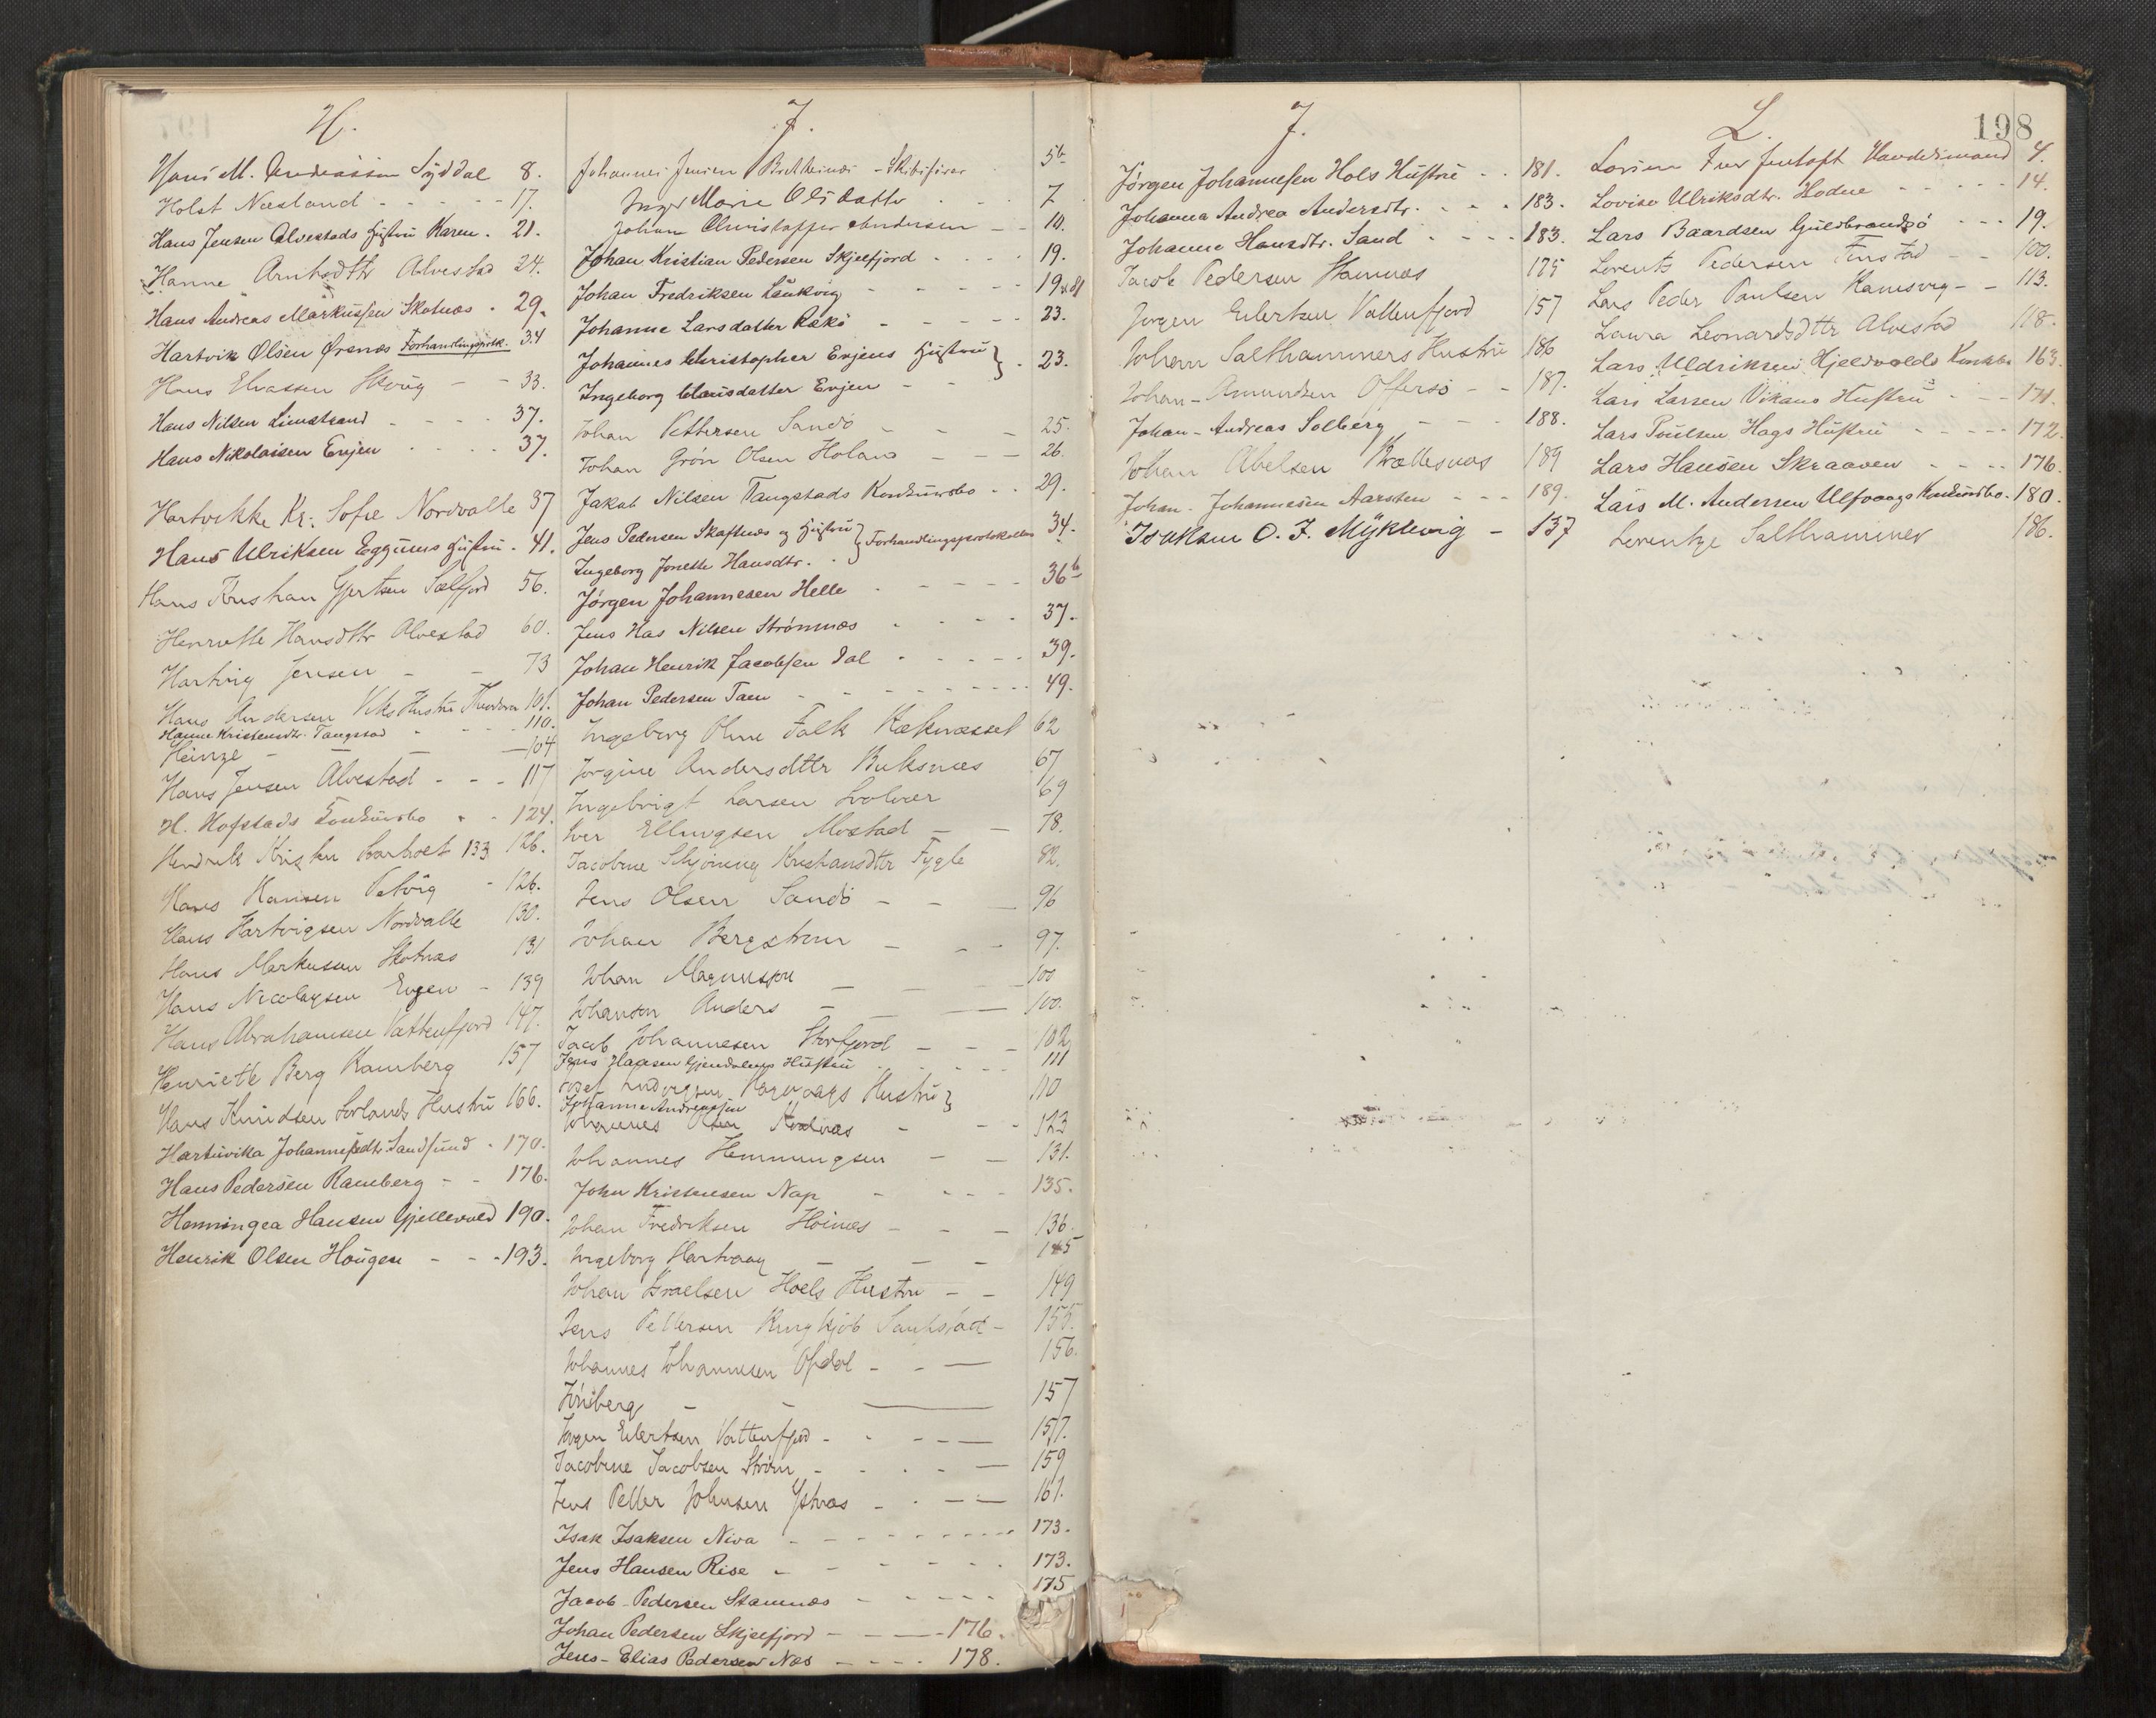 H.
Hans M. Andreassen Syddal 8.
Holst Næsland - - - - 17.
Hans Jensen Alvestads Hustru Karen. 21.
Hanne Arntsdttr Alvestad 24.
Hans Andreas Markussen Skotnæs . 29.
Hartvik Olsen Ørsnæs Forhandlingsprtk. 34
Hans Eliassen - - 33.
Hans Nilsen Limstrand - - - - 37.
Hans Nikolaisen Evjen - - - - 37.
Hartvikke Kr. Sofie Nordvalle 37
Hans Ulriksen Eggums Hustru . 41.
Hans Kristian Gjertsen Sælfjord 56.
Henriette Hansdttr Alvestad 60.
Hartvig Jensen - - 73
Hans Andersen Viks Hustru Theodora 101.
Hanne Kristensdtr. Tangstad - - - 110.
Heinze - - - 104
Hans Jensen Alvestad - - - 117
H. Hofstads Konkursbo - - 124.
Hendrik Kristen 133 126.
Hans Hansen Petvig - 126.
Hans Hartvigsen Nordvalle 130.
Hans Markussen Skotnæs 131
Hans Nicolaysen Evjen - 139
Hans Abrahamsen Vatterfjord 147.
Henriette Berg Ramberg 157
Hans Knudsen Sørlands Hustru 166.
Hartuvika Johannesdtr. Sandsund - 170.
Hans Pedersen Ramberg - - 176.
Henningea Hansen Gjellevold 190.
Henrik Olsen Hougen - - - 193.
J.
Johannes Jensen - Skibsfører 5b
Inger Marie Olsdatter - - - 7
Johan Christopher Andersen - - 10.
Johan Kristian Pedersen Skjelfjord - - - - 19.
Johan Fredriksen Laukvig - - - - - 19
Johanne Larsdatter Rækø - - - - - 23.
Johannes Christopher Evjens Hustru } . 23.
Ingeborg Clausdatter Evjen - -
Johan Pettersen Sandø - - - 25.
Johan Grøn Olsen Holand - - - 26.
Jakob Nilsen Tangstads Konkursbo - . 29.
Jens Pedersen Skaftnes og Hustru } Forhandlingsprotokollen 34.
Ingeborg Jonette Hansdtr. .
Jørgen Johannesen Helle - - - - - 36b
Jens Has Nilsen Strømnæs - - - - 37.
Johan Henrik Jacobsen Dal - - - - - 39.
Johan Pedersen Tam - - - - - - - - 49.
Ingeborg Oline Falk 62
Jørgine Andersdttr Buksnæs 67
Ingebrigt Larsen Svolvær 69
Iver Ellingsen Mostad - - 78.
Jacobine Schjønning Kristiansdttr Fygle 82.
Jens Olsen Sandø - - - 96
Johan Bergstrøm - - - 97.
Johan Magnusson - - - 100
Johanson Anders - - - 100.
Jacob Johannesen Storfjord - - - 102
Jens Hansen Hustru - - - - 111
Ludvigsen Hustru } 110
Johanne Andreassen
Johannes Olsen Kvalnæs - - - 123
Johannes Hemmingsen - - 131.
John Kristensen Nap - - - - 135.
Johan Fredriksen Hoines - - - 136.
Ingeborg Hartvaag - - - 145
Johan Israelsen Hoels Hustru - - 149
Jens Pettersen - 155.
Johannes Johannesen Opdal - - - 156.
- - - 157
Jørgen Eilertsen Vatterfjord - - - - 157.
Jacobine Jacobsen Strøm - - - - - 159
Jens Petter Johnsen - - - - 161.
Isak Isaksen Niva - - - - - - - 173.
Jens Hansen Rise - - - - - - 173.
Jacob Pedersen Stamnæs - - - - - 175
Johan Pedersen Skjelfjord - - - - 176.
Jens-Elias Pedersen Næs - - - - 178.
J.
Jørgen Johannesen Hols Hustru - - 181.
Johanna Andrea Andersdtr. - - - 183.
Johanne Hansdtr. Sand - - - - 183.
Jacob Pedersen Stamnæs 175
Jørgen Eilertsen Vatterfjord 157
Johan Salthammers Hustru 186
Johan-Amundsen Offersø - - 187.
Johan-Andreas Solberg - - - 188.
Johan Abelsen 189
Johan-Johannessen Aarsten - - - 189.
Isaksen O. J. Myklevig - 137
198
L.
Handelsmand 4.
Lovise Ulriksdtr. Hodne - - - - - 14.
Lars Baardsen Guldbrandsø - - - 19.
Lorentz Pedersen Finstad - - 100.
Lars Peder Paulsen Ramsvig - - 113.
Laura Leonardsdttr Alvestad 118.
Lars Uldriksen Hjeldvolds Konkbo 163.
Lars Larsen Vikans Hustru - - - 171.
Lars Poulsen Hags Hustru - - - - - 172.
Lars Hansen Skraaven - - - - 176.
Lars M. Andersen Ulfvaags Konkursbo - 180.
Lorentze Salthammer 186.